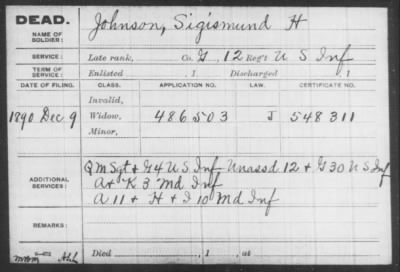 DEAD. Johnson, Sigismund H
NAME OF SOLDIER:
SERVICE: Late rank, Co. G, 12 Reg't U S Inf
TERM OF SERVICE: Enlisted , 1 Discharged , 1
DATE OF FILING. CLASS. APPLICATION NO. LAW. CERTIFICATE NO.
Invalid,
1890 Dec 9 Widow, 486503 J 548311
Minor,
ADDITIONAL SERVICES: QM Sgt & G 4 U S Inf Unassd 12 & G 30 U S Inf
A & K 3 Md Inf
A 11 & H & I 10 Md Inf
REMARKS:
Died , 1 , at